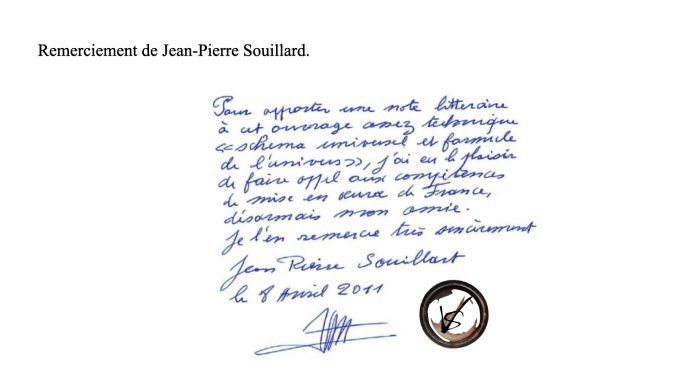 Remerciement de Jean-Pierre Souillard.
Pour apporter une note litteraire
à cet ouvrage assez technique
«schema universel et formule
de l'univers», j'ai eu le plaisir
de faire appel aux compétences
de mise en œuvre de France,
désormais mon amie.
Je l'en remercie très sincèrement
Jean Pierre Souillart
le 8 Avril 2011